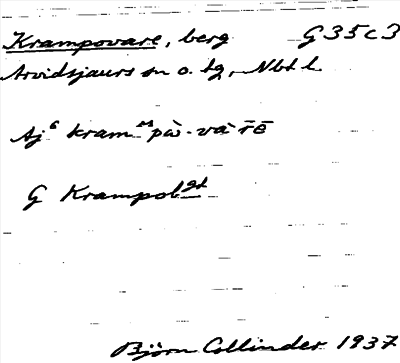 Krampovare, berg G35c3
Arvidsjaurs sn o. tg, Nbt l.
Aj kram pὰ-vὰrē
G Krampob gd
Björn Collinder 1937